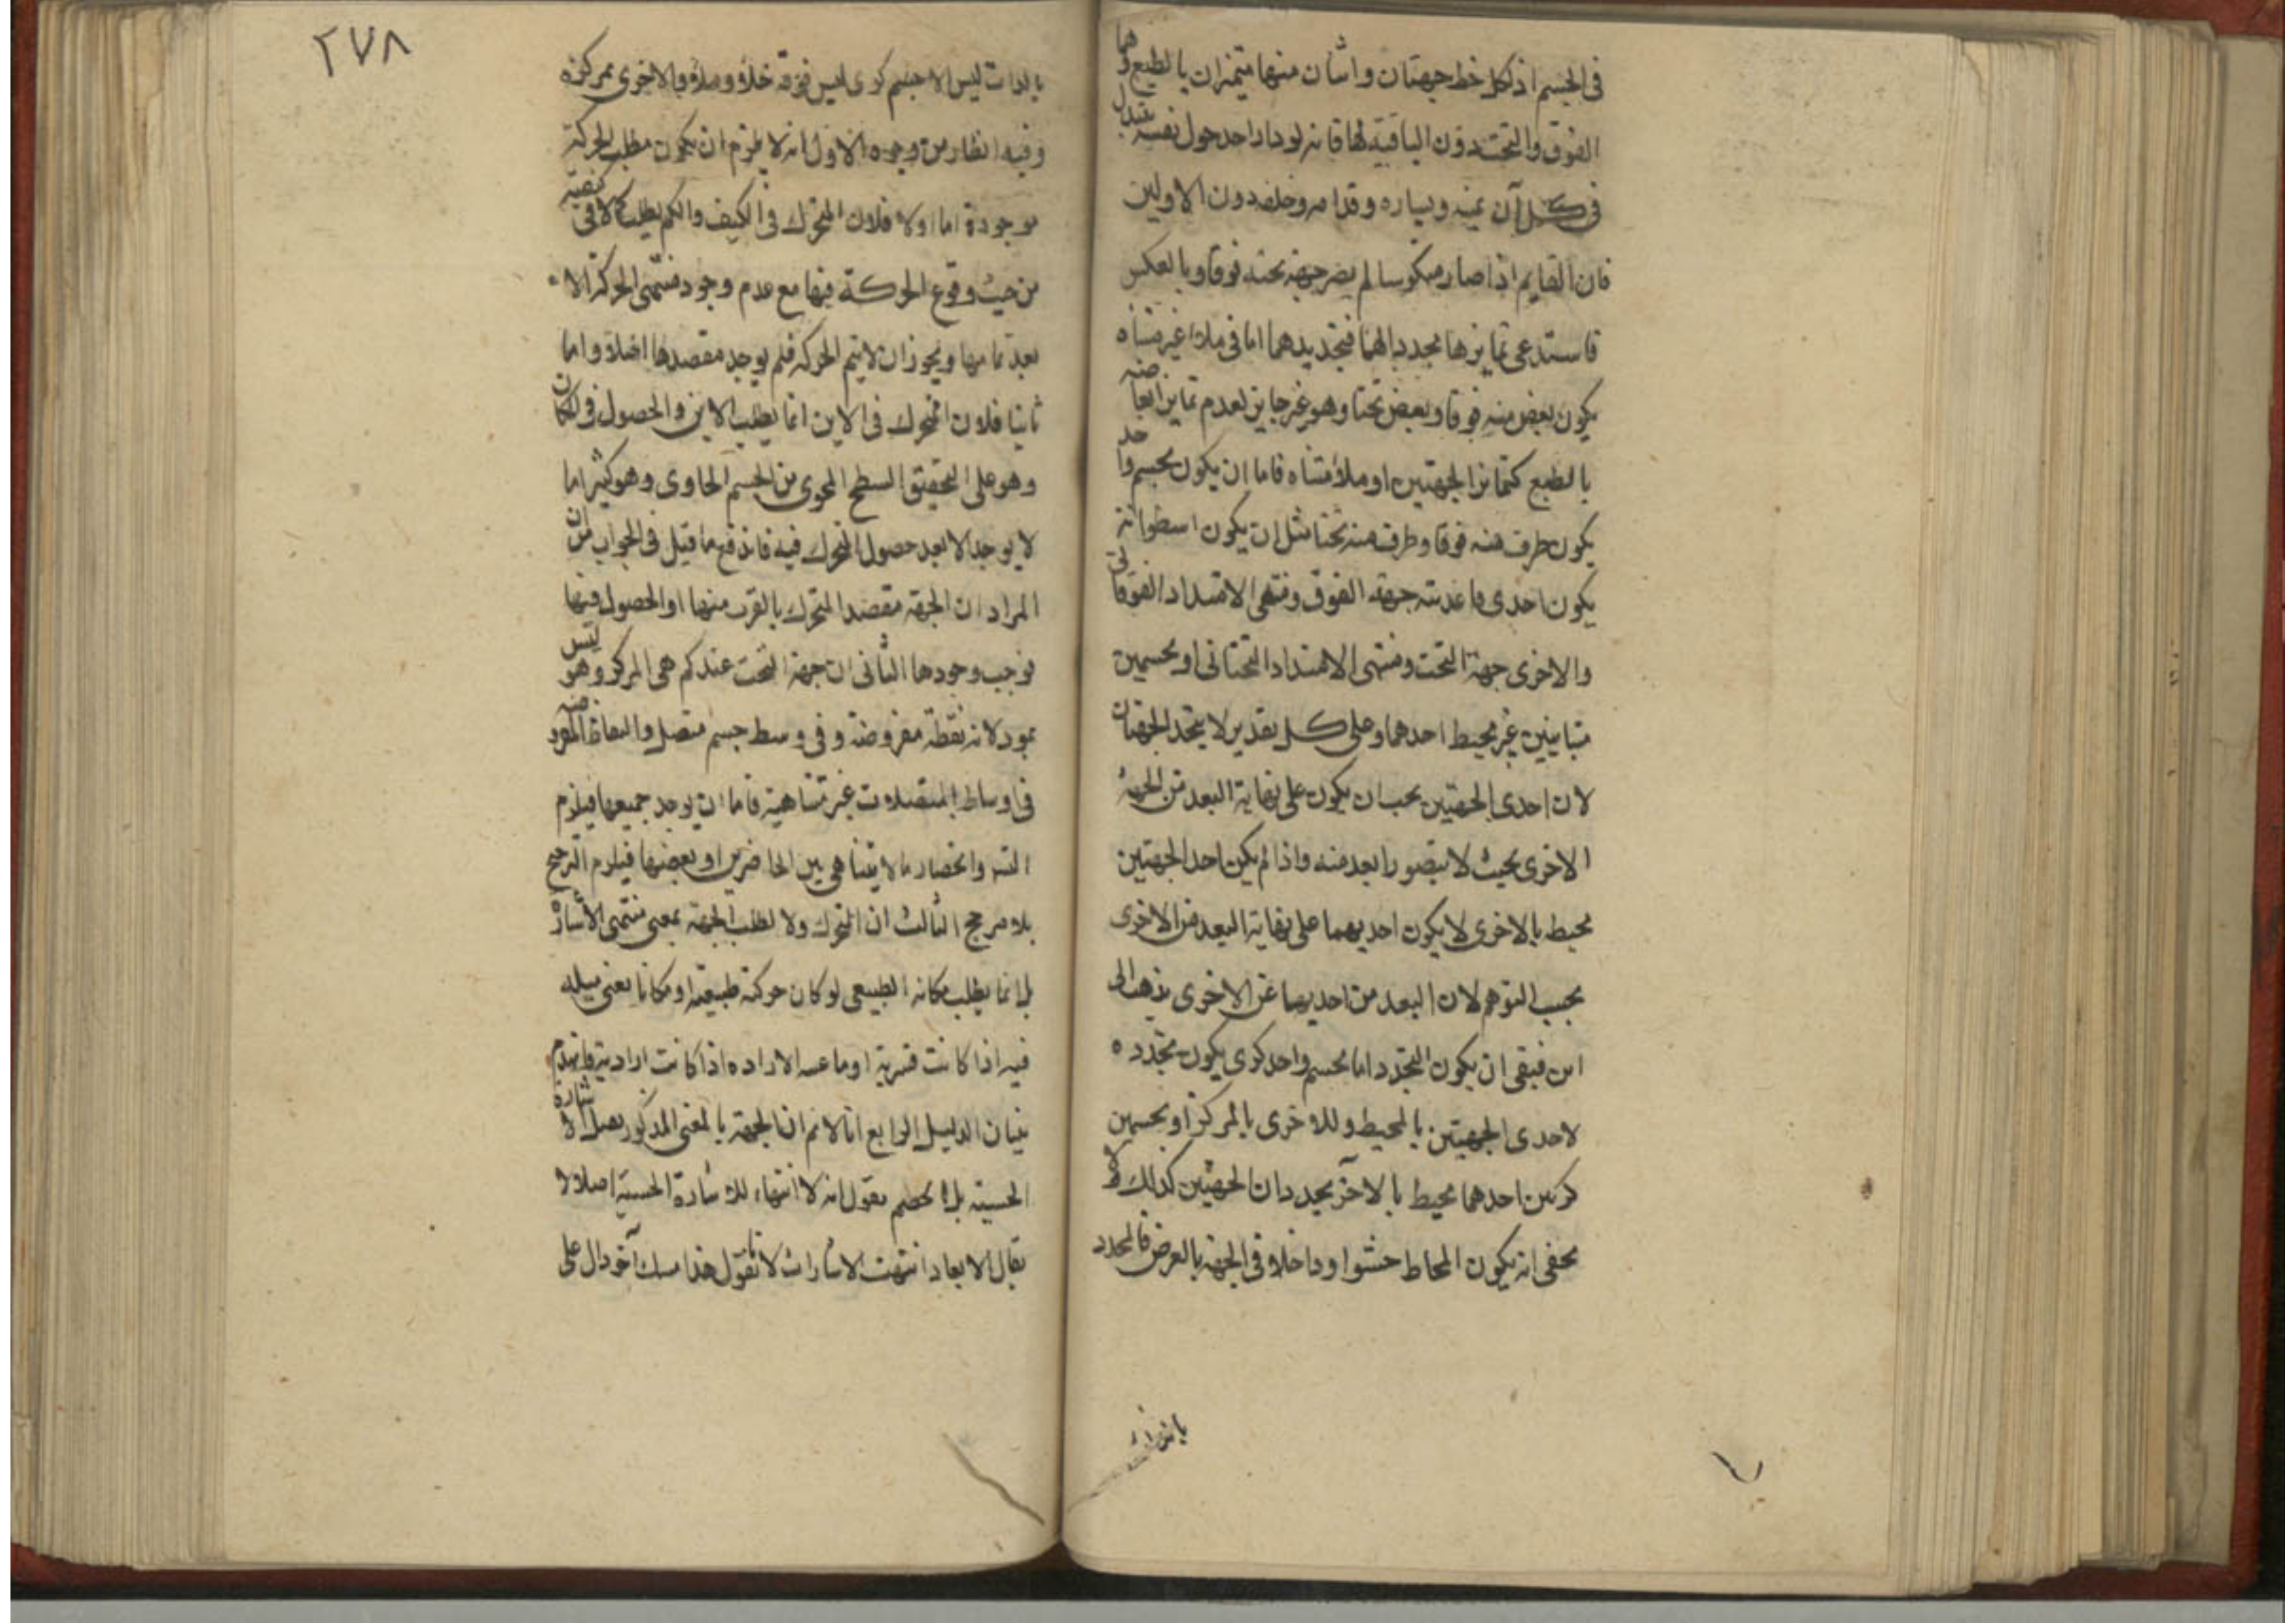 في الجسم اذ لكل خط جهتان واثنان منها متميزان بالطبع وهما
الفوق والتحت دون الباقية لها فانه لو دار احد حول نفسه يتبدل
في كل آن يمينه ويساره وقدامه وخلفه دون الاولين
فان القايم اذا صار منكوسا لم يصر جهة تحته فوقا وبالعكس
فاستدعى تمايزها محددا لهما فتحديدهما اما في ملاء غير متناه
يكون بعض منه فوقا وبعض تحتا وهو غير جايز لعدم تمايز ابعاضه
بالطبع كتمايز الجهتين او ملاء متناه فاما ان يكون بجسم واحد
يكون طرف منه فوقا وطرف منه تحتا مثل ان يكون اسطوانة
يكون احدى قاعدته جهة الفوق ومنتهى الامتداد الفوقاني
والاخرى جهة التحت ومنتهى الامتداد التحتاني او بجسمين
متباينين غير محيط احدهما وعلى كل تقدير لا يتحد الجهتان
لان احدى الجهتين يجب ان يكون على نهاية البعد من الجهة
الاخرى بحيث لا يتصور ابعد منه واذا لم يكن احد الجهتين
محيط بالاخرى لا يكون احديهما على نهاية البعد من الاخرى
بحسب التوهم لان البعد من احديهما عن الاخرى يذهب الى
اين فبقي ان يكون التحدد اما بجسم واحد كرى يكون تحدده
لاحدى الجهتين بالمحيط وللاخرى بالمركز او بجسمين
كريين احدهما محيط بالاخر يحددان الجهتين كذلك لا
يخفى انه يكون المحاط حشوا وداخلا في الجهة بالعرض فالمحدد
٢٧٨
بالذات ليس الا جسم كرى ليس فوقه خلاء وملاء والاخرى بمركزه
وفيه انظار من وجوه الاول انه لا يلزم ان يكون مطلب الحركة
موجودة اما اولا فلان المتحرك في الكيف والكم يطلب كمالا في كيفيته
من حيث وقوع الحركة فيها مع عدم وجود منتهى الحركة الا
بعد تمامها ويجوز ان لا يتم الحركة فلم يوجد مقصدها اصلا واما
ثانيا فلان المتحرك في الاين انما يطلب الاين والحصول في المكان
وهو على التحقيق السطح المحوى من الجسم الحاوى وهو كثيرا ما
لا يوجد الا بعد حصول المتحرك فيه فاندفع ما قيل في الجواب من ان
المراد ان الجهة مقصد المتحرك بالقرب منها او الحصول فيها
فوجب وجودها الثاني ان جهة التحت عندكم هي المركز وهو ليس
بموجود لانه نقطة مفروضة وفي وسط جسم متصل والنقاط المفروضة
في اوساط المتصلات غير متناهية فاما ان يوجد جميعها فيلزم
التسـ وانحصار ما لا يتناهى بين الحاضرين او بعضها فيلزم الترجيح
بلا مرجح الثالث ان المتحرك ولا يطلب الجهة بمعنى منتهى الاشارة
بل انما يطلب مكانه الطبيعي لو كان حركته طبيعية او مكانا يعنى ميله
فيه اذا كانت قسرية او ما عينه الاراده اذا كانت ارادية فانهدم
بنيان الدليل الرابع انا لا نم ان الجهة بالمعنى المذكور يصل الاشارة
الحسية بل الخصم يقول انه لا انتهاء للاشارة الحسية اصلا لا
يقال الابعاد انتهت الاشارات لانا نقول هذا مسلك آخر دال على